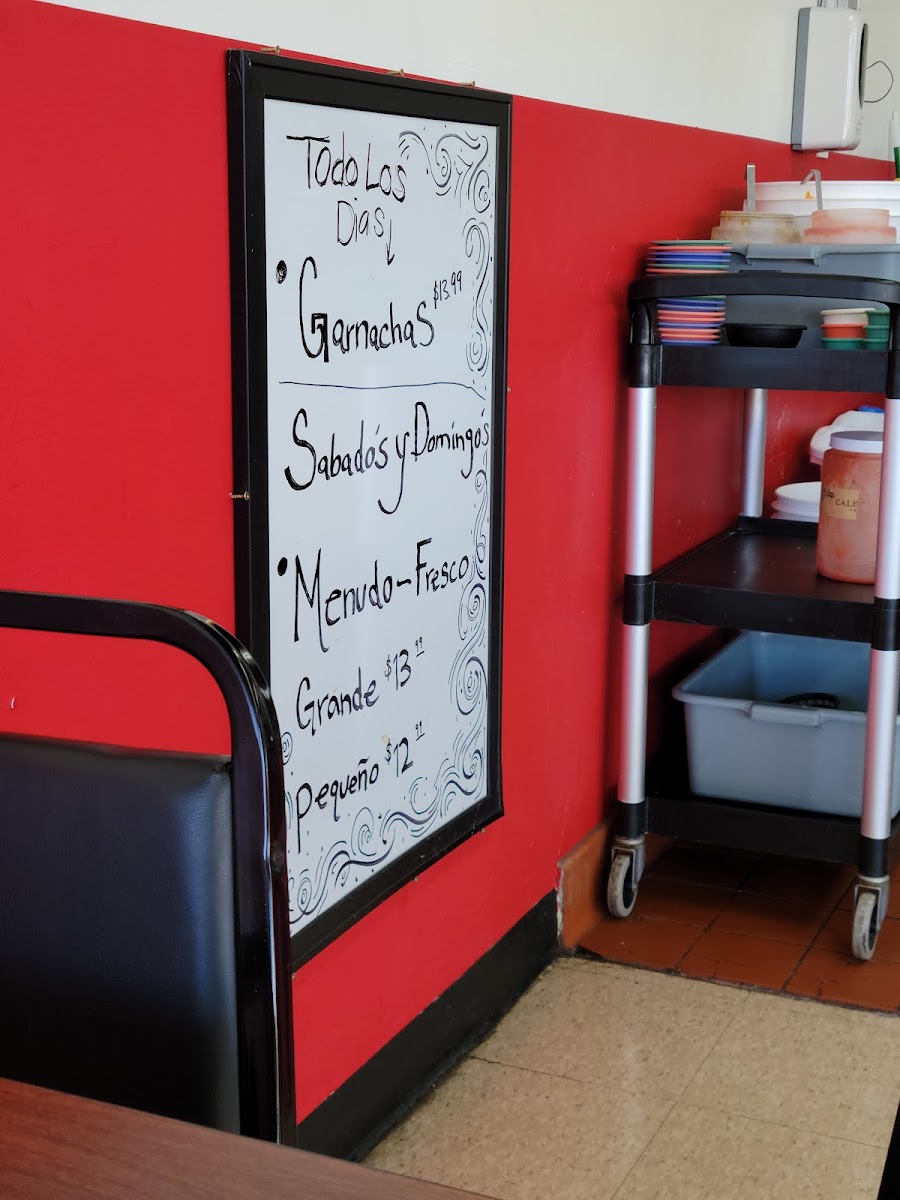 Todo Los
Dias ↓
• Garnachas $13.99
Sabado's y Domingo's
• Menudo-Fresco
Grande $13.99
Pequeño $12.99